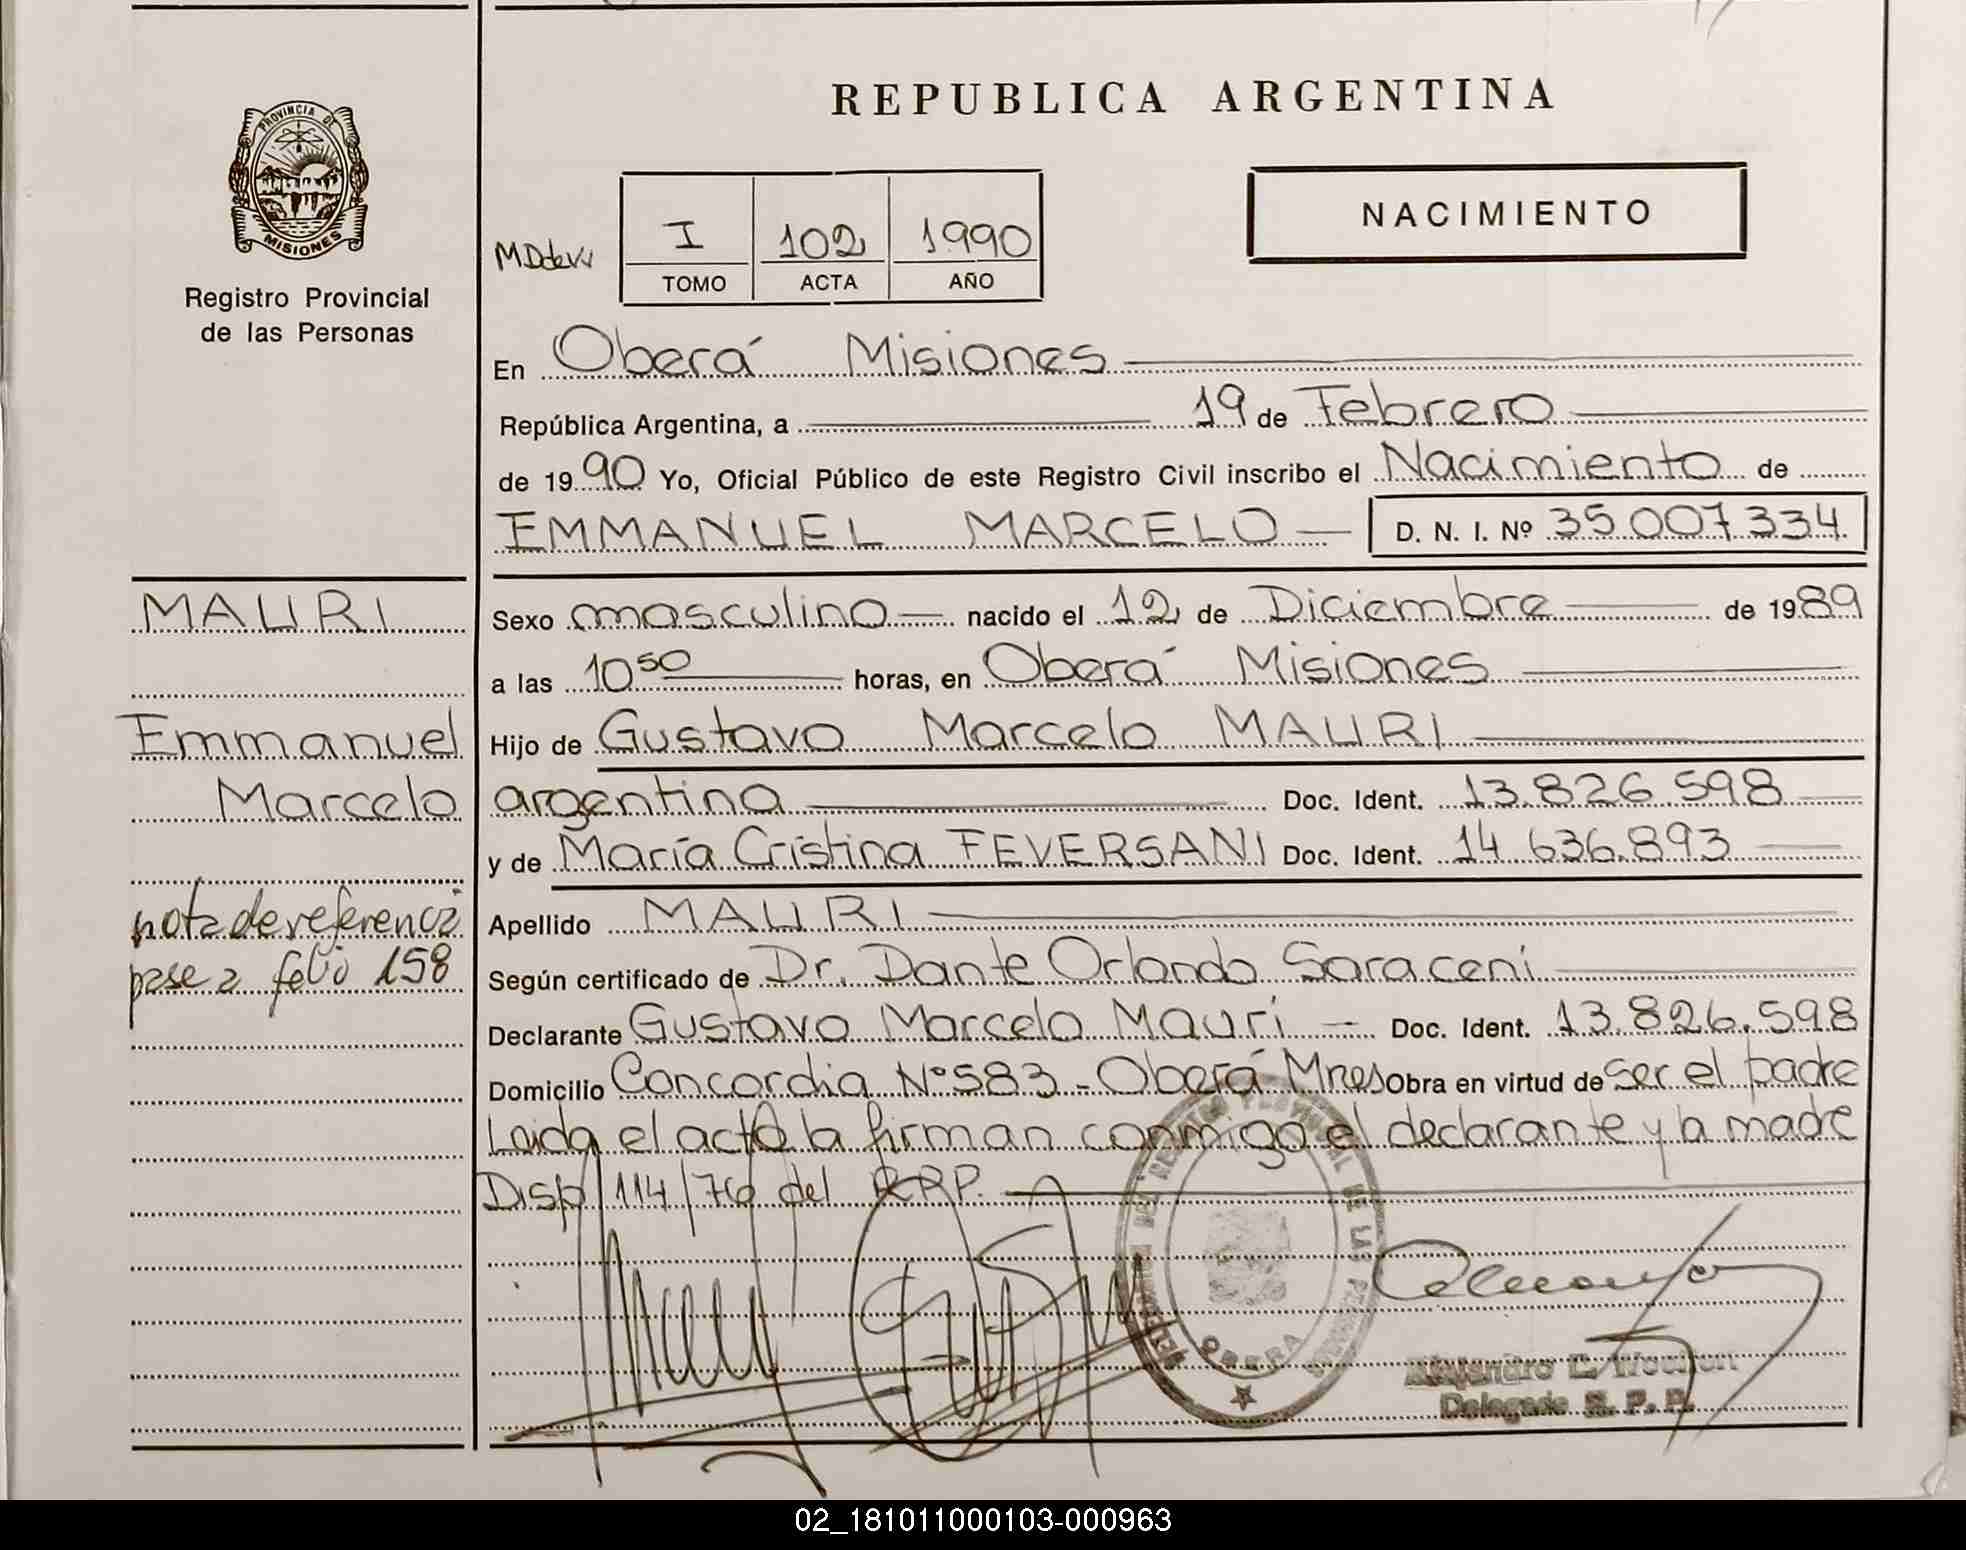 REPUBLICA ARGENTINA
PROVINCIA DE
MISIONES
Registro Provincial
de las Personas
I 102 1990
TOMO ACTA AÑO
NACIMIENTO
En Oberá Misiones
República Argentina, a 19 de Febrero
de 1990 Yo, Oficial Público de este Registro Civil inscribo el Nacimiento de
EMMANUEL MARCELO D. N. I. Nº 35.007.334.
MAURI
Emmanuel
Marcelo
nota de referencia
pase a folio 158
Sexo masculino nacido el 12 de Diciembre de 1989
a las 10 50 horas, en Oberá Misiones
Hijo de Gustavo Marcelo MAURI
argentina Doc. Ident. 13.826.598
y de María Cristina FEVERSANI Doc. Ident. 14 636.893
Apellido MAURI
Según certificado de Dr. Dante Orlando Saraceni
Declarante Gustavo Marcelo Mauri — Doc. Ident. 13.826.598
Domicilio Concordia Nº 583 - Oberá Mnes Obra en virtud de ser el padre
Leida el acta la firman conmigo el declarante y la madre
Disp/114/76 del RRP.
OBERA
Delegado R. P. P.
02_181011000103-000963